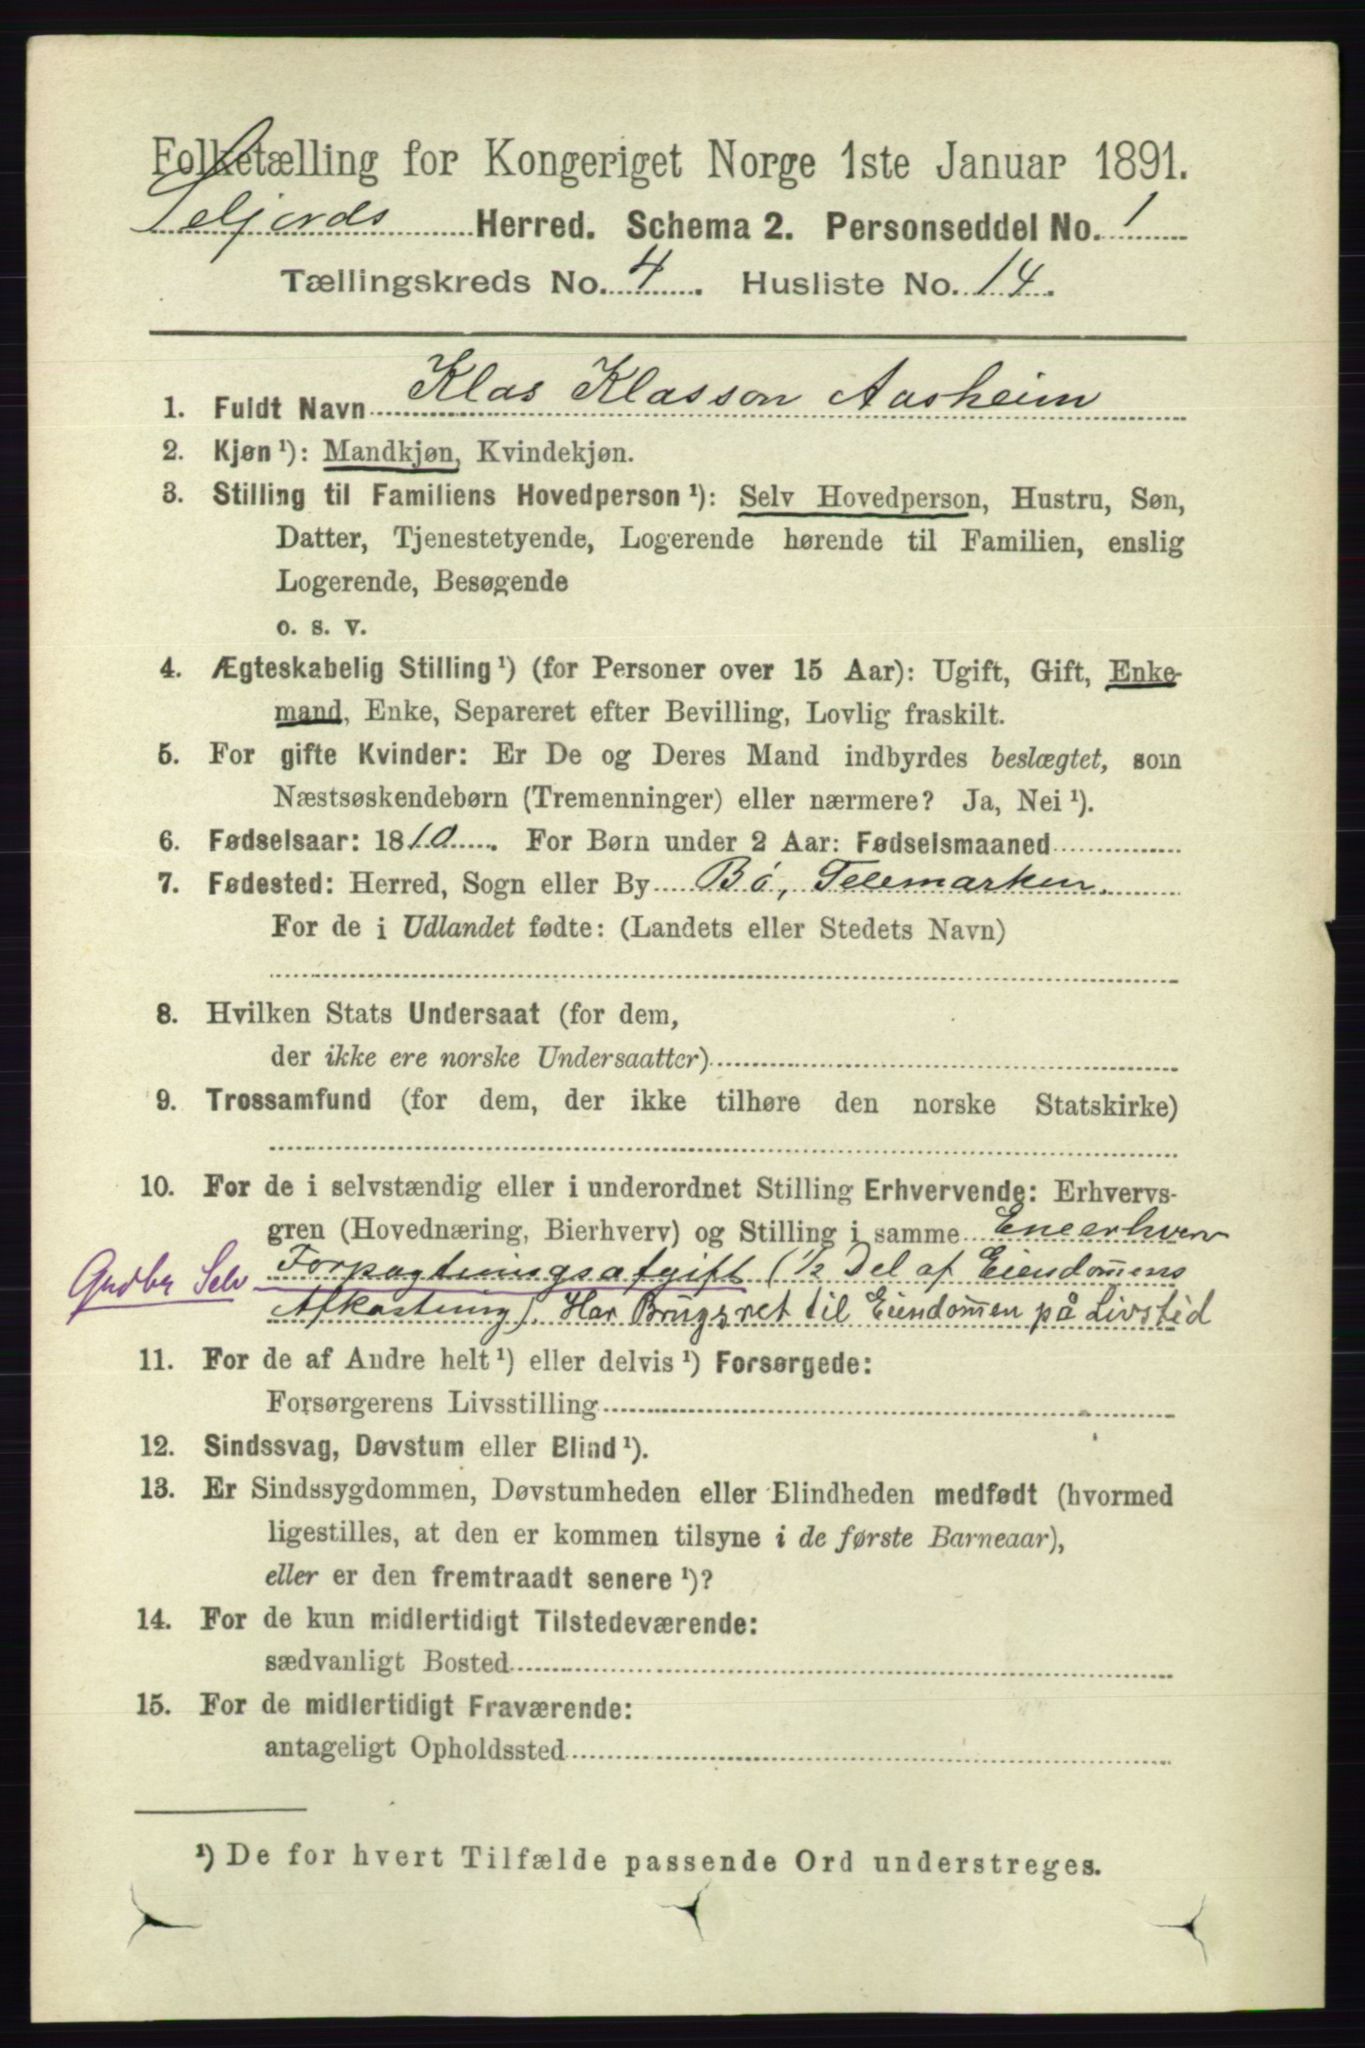 Folketælling for Kongeriget Norge 1ste Januar 1891.
Seljords Herred. Schema 2. Personseddel No. 1
Tællingskreds No. 4. Husliste No. 14.
1. Fuldt Navn Klas Klasson Aasheim
2. Kjøn ¹): Mandkjøn, Kvindekjøn.
3. Stilling til Familiens Hovedperson ¹): Selv Hovedperson, Hustru, Søn,
Datter, Tjenestetyende, Logerende hørende til Familien, enslig
Logerende, Besøgende
o. s. v.
4. Ægteskabelig Stilling ¹) (for Personer over 15 Aar): Ugift, Gift, Enke-
mand, Enke, Separeret efter Bevilling, Lovlig fraskilt.
5. For gifte Kvinder: Er De og Deres Mand indbyrdes beslægtet, som
Næstsøskendebørn (Tremenninger) eller nærmere? Ja, Nei ¹).
6. Fødselsaar: 1810. For Børn under 2 Aar: Fødselsmaaned
7. Fødested: Herred, Sogn eller By Bö, Telemarken.
For de i Udlandet fødte: (Landets eller Stedets Navn)
8. Hvilken Stats Undersaat (for dem,
der ikke ere norske Undersaatter)
9. Trossamfund (for dem, der ikke tilhøre den norske Statskirke)
10. For de i selvstændig eller i underordnet Stilling Erhvervende: Erhvervs-
gren (Hovednæring, Bierhverv) og Stilling i samme Eneerhverv
Gndbr Selv Forpagtningsafgift (1/2 Del af Eiendom̄ens
Afkastning). Har Brugsret til Eiendom̄en på Livstid
11. For de af Andre helt ¹) eller delvis ¹) Forsørgede:
Forsørgerens Livsstilling
12. Sindssvag, Døvstum eller Blind ¹).
13. Er Sindssygdommen, Døvstumheden eller Blindheden medfødt (hvormed
ligestilles, at den er kommen tilsyne i de første Barneaar),
eller er den fremtraadt senere ¹)?
14. For de kun midlertidigt Tilstedeværende:
sædvanligt Bosted
15. For de midlertidigt Fraværende:
antageligt Opholdssted
¹) De for hvert Tilfælde passende Ord understreges.